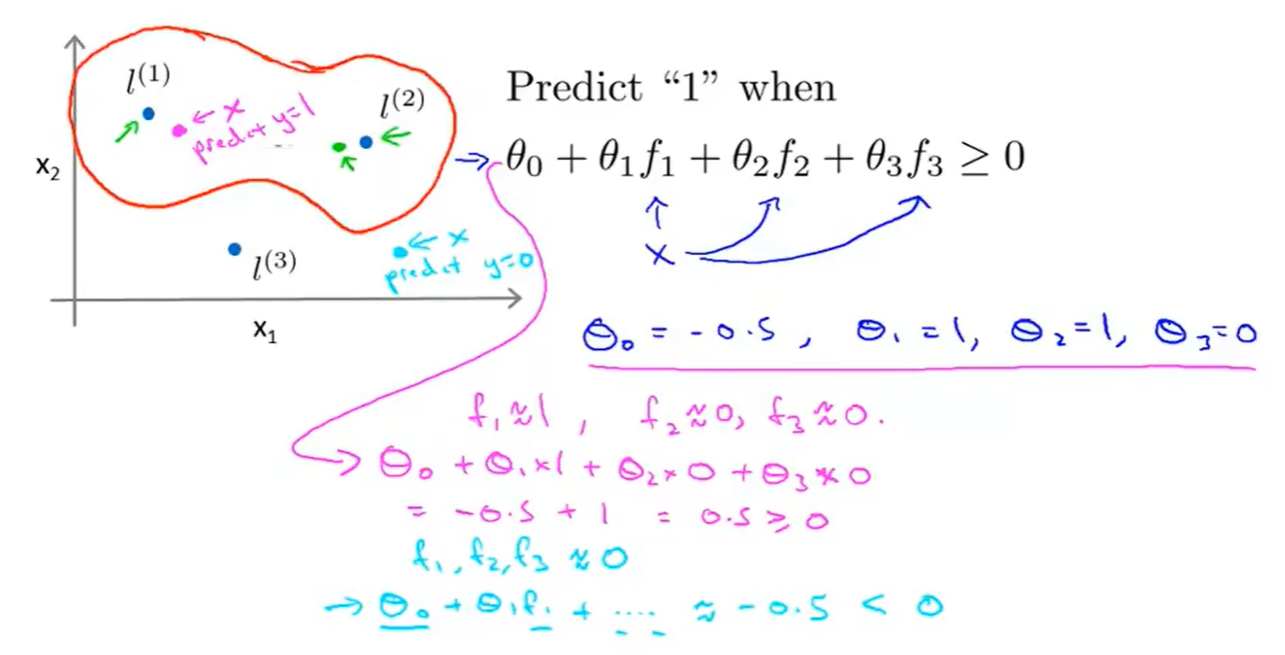 l⁽¹⁾
← x
predict y=1
l⁽²⁾
x₂
l⁽³⁾
← x
predict y=0
x₁
Predict “1” when
→ θ₀ + θ₁f₁ + θ₂f₂ + θ₃f₃ ≥ 0
x
θ₀ = -0.5 , θ₁ = 1, θ₂ = 1, θ₃ = 0
f₁ ≈ 1 , f₂ ≈ 0, f₃ ≈ 0.
→ θ₀ + θ₁×1 + θ₂×0 + θ₃×0
= -0.5 + 1 = 0.5 ≥ 0
f₁, f₂, f₃ ≈ 0
→ θ₀ + θ₁f₁ + .... ≈ -0.5 < 0